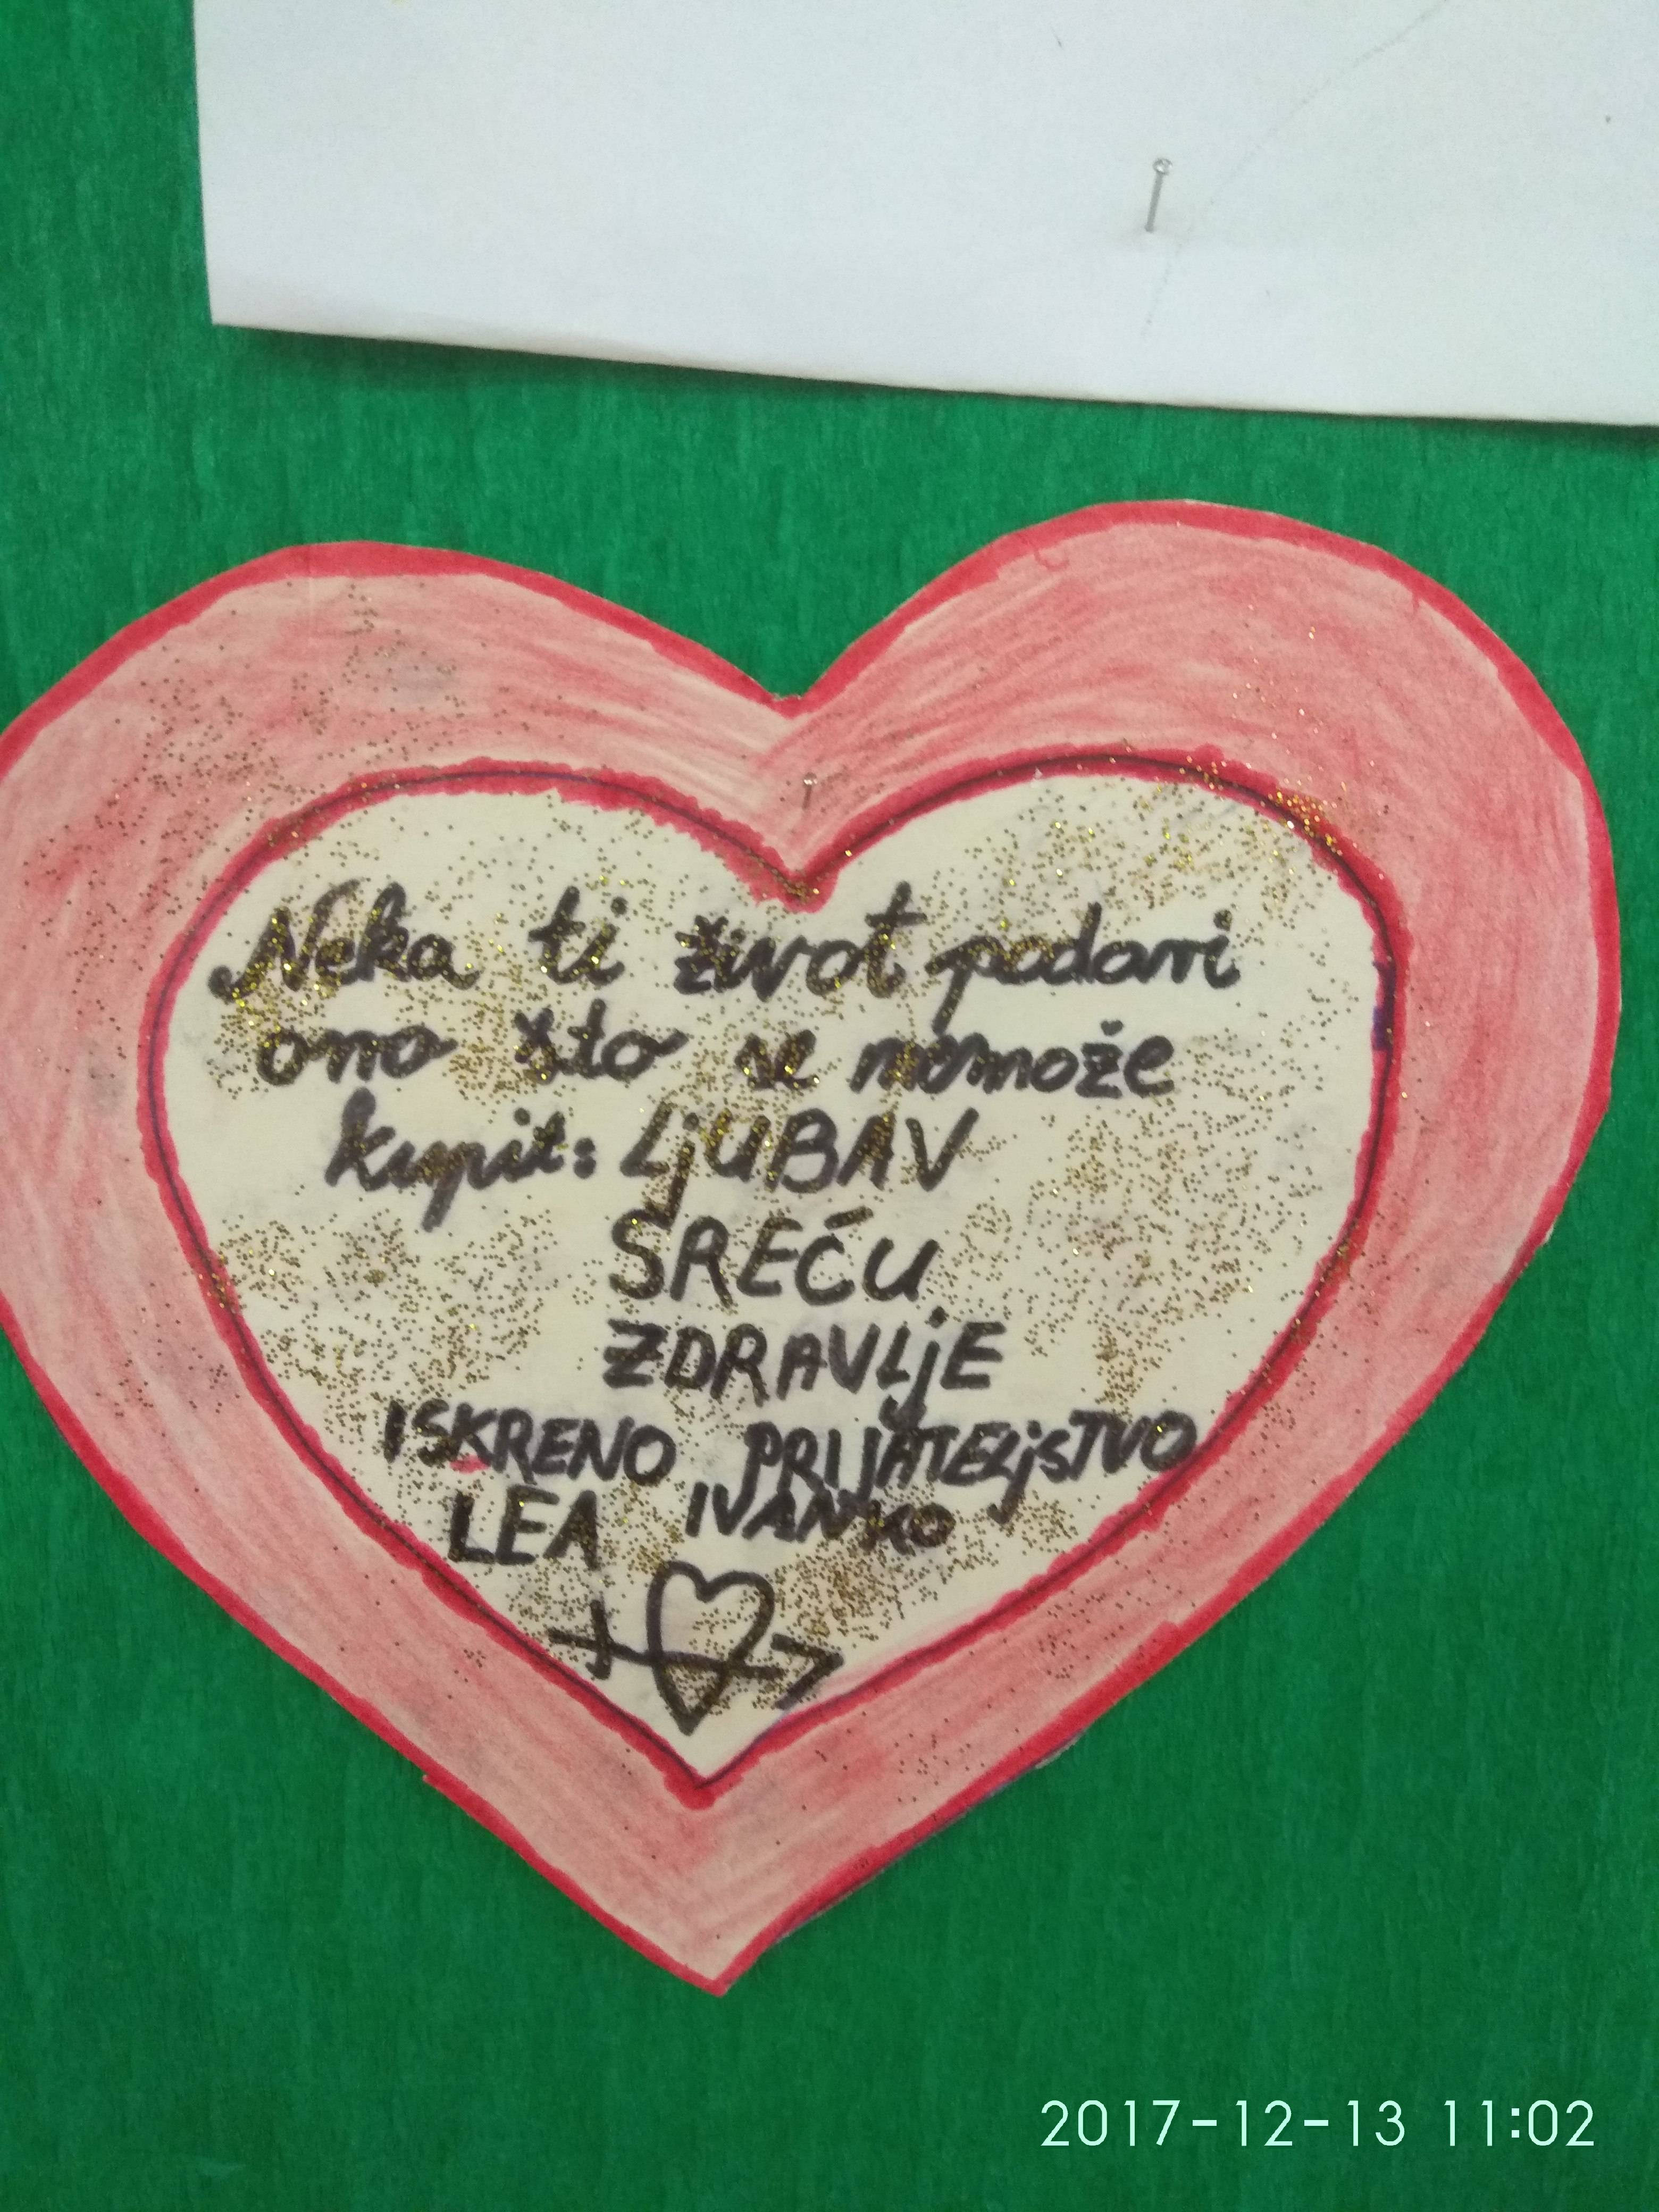 Neka ti život podari
ono što se nemože
kupit: LjUBAV
SREĆU
ZDRAVLjE
ISKRENO PRIJATELjSTVO
LEA IVANKO
2017-12-13 11:02